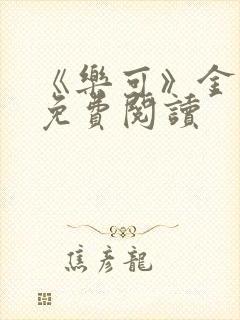 《樂可》全
免費閱讀
焦彥龍